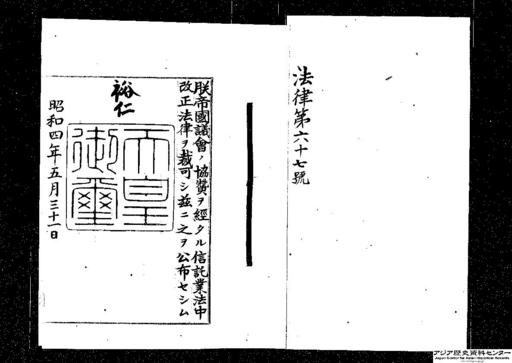 法律第六十七號
朕帝國議會ノ協賛ヲ經タル信託業法中
改正法律ヲ裁可シ茲ニ之ヲ公布セシム
裕仁
天皇
御璽
昭和四年五月三十一日
アジア歴史資料センター
Japan Center for Asian Historical Records